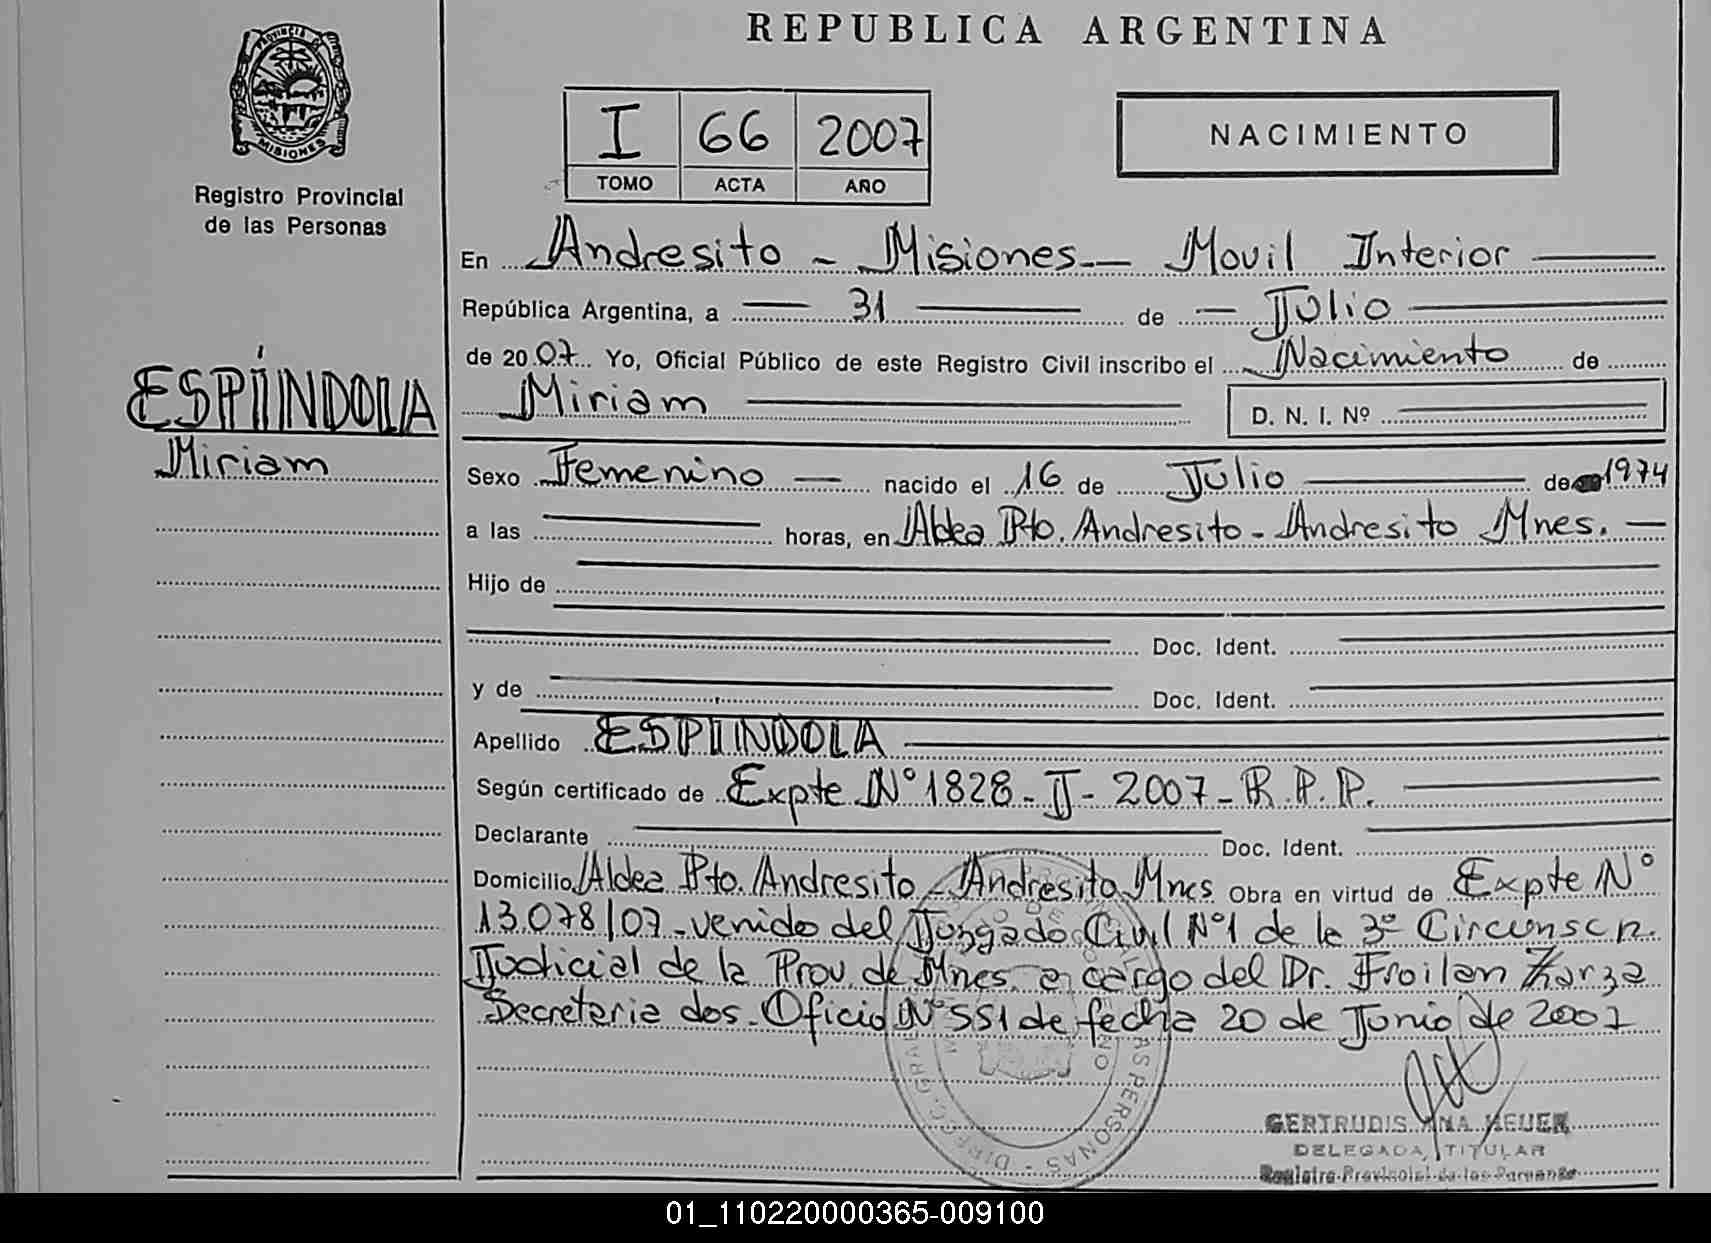 REPUBLICA ARGENTINA
PROVINCIA DE
MISIONES
Registro Provincial
de las Personas
I 66 2007
TOMO ACTA AÑO
NACIMIENTO
En Andresito - Misiones - Movil Interior
República Argentina, a 31 de Julio
de 2007 Yo, Oficial Público de este Registro Civil inscribo el Nacimiento de
Miriam D. N. I. Nº
ESPÍNDOLA
Miriam
Sexo Femenino nacido el 16 de Julio de 1974
a las horas, en Aldea Pto. Andresito - Andresito Mnes.
Hijo de
Doc. Ident.
y de Doc. Ident.
Apellido ESPINDOLA
Según certificado de Expte N° 1828 - J - 2007 - R. P. P.
Declarante Doc. Ident.
Domicilio Aldea Pto. Andresito - Andresito Mnes Obra en virtud de Expte N°
13.078/07 - venido del Juzgado Civil N°1 de la 3º Circunscr.
Judicial de la Prov. de Mnes. a cargo del Dr. Froilan Zarza
Secretaria dos. Oficio N° 551 de fecha 20 de Junio de 2007
LAS PERSONAS - DIREC. GRAL
GERTRUDIS ANA HEUER
DELEGADA TITULAR
Registro Provincial de las Personas
01_110220000365-009100